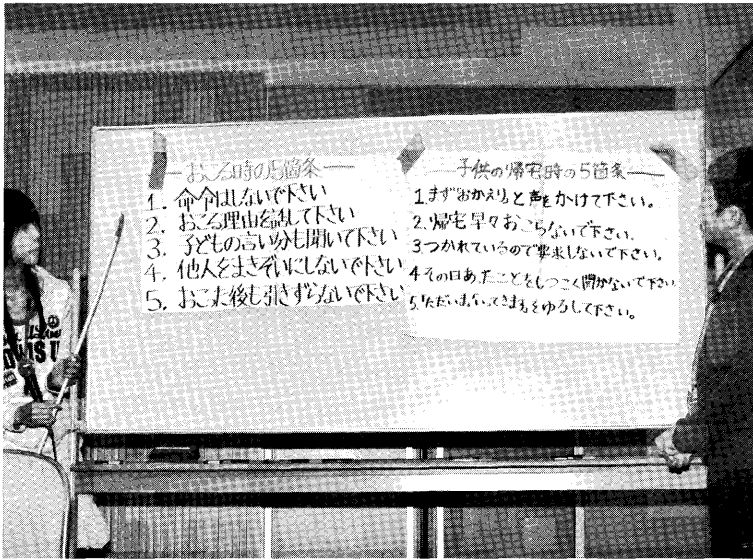 ―おこる時の5箇条―
1. 命令はしないで下さい
2. おこる理由を話して下さい
3. 子どもの言い分も聞いて下さい
4. 他人をまきぞいにしないで下さい
5. おこった後も引きずらないで下さい
―子供の帰宅時の5箇条―
1.まず"おかえり"と声をかけて下さい。
2.帰宅早々おこらないで下さい。
3.つかれているので要求しないで下さい。
4.その日あったことをしつこく聞かないで下さい
5."ただいま、いってきます"をゆるして下さい。